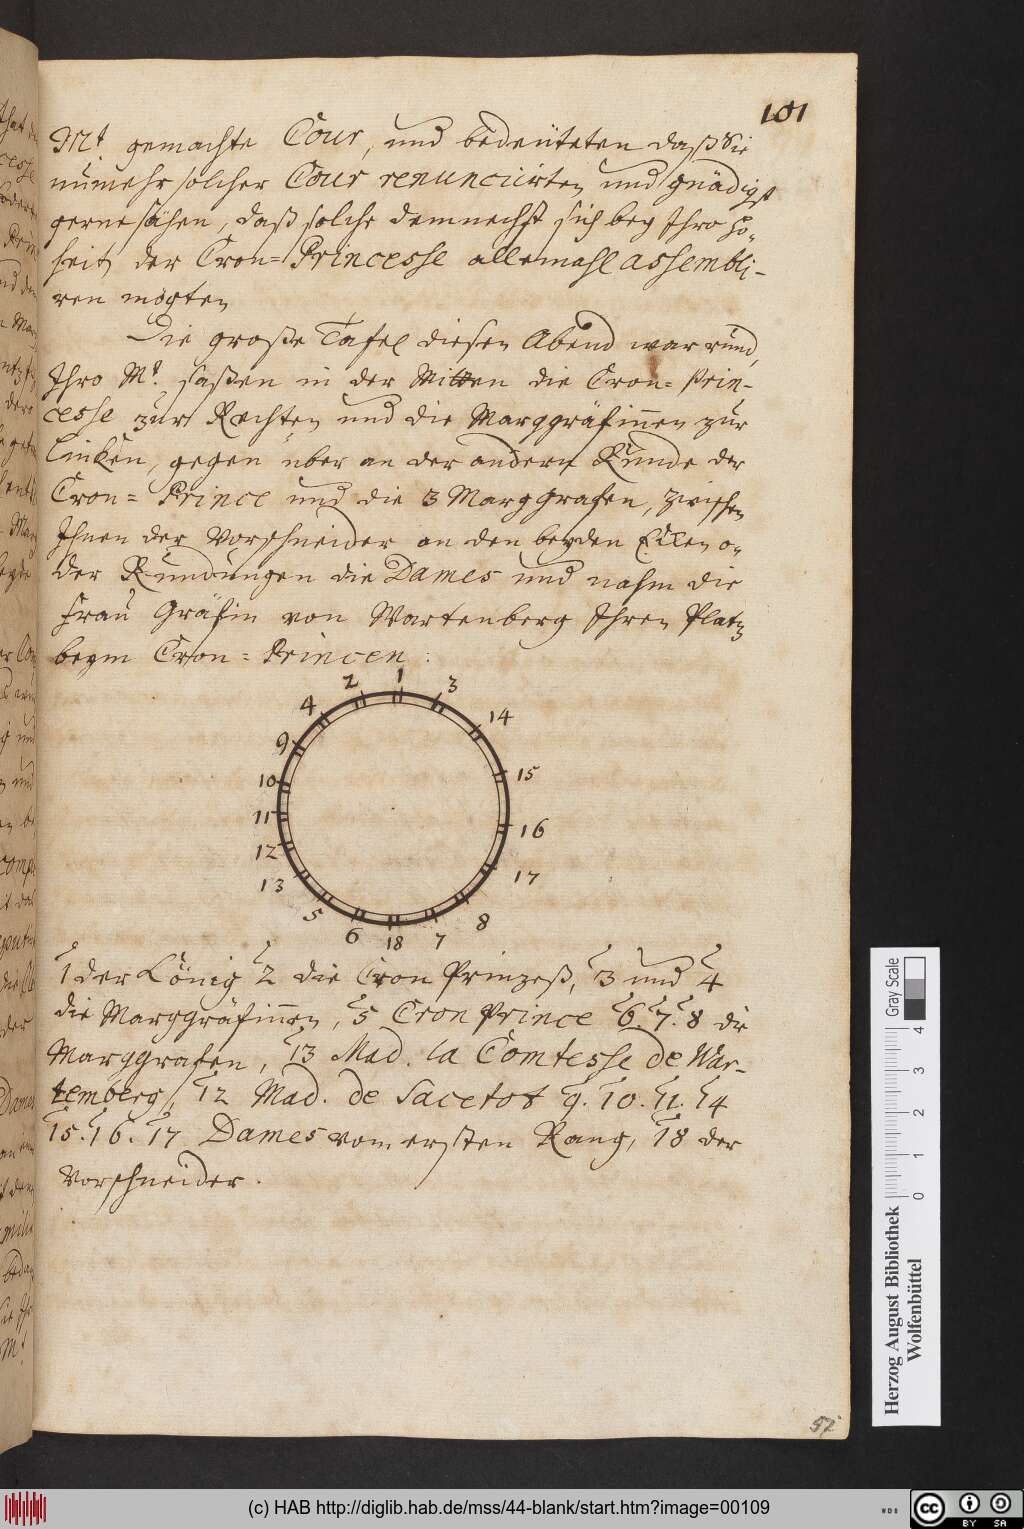 101
Mt. gemachte Cour, und bedeüteten daß Sie
nunmehr solcher Cour renunciirten und gnädigst
gerne sähen, daß solche demnechst sich bey Ihro Ho-
heit der Cron=Princesse allemahl assembli-
ren mögten
Die große Tafel diesen Abend war rund,
Ihro Mt. saßen in der Mitten die Cron=Prin-
cesse zur Rechten und die Marggräfinnen zur
Lincken, gegen über an der andern Runde der
Cron=Prince und die 3 Marggrafen, zwischen
Ihnen der Vorschneider an den beyden Ecken o-
der Rundungen die Dames und nahm die
Frau Gräfin von Wartenberg Ihren Platz
beym Cron=Princen:
2 1 3
4 14
9
10 15
11 16
12
13 17
5 8
6 18 7
1 der König 2 die Cron Prinzeß, 3 und 4
die Marggräfinnen, 5 Cron Prince 6. 7. 8 die
Marggrafen, 13 Mad. la Comtesse de War-
temberg, 12 Mad. de Sacetot 9. 10. 11. 14
15. 16. 17 Dames vom ersten Rang, 18 der
Vorschneider.
57
Gray Scale
0 1 2 3 4
Herzog August Bibliothek
Wolfenbüttel
(c) HAB http://diglib.hab.de/mss/44-blank/start.htm?image=00109
WDB
cc BY SA